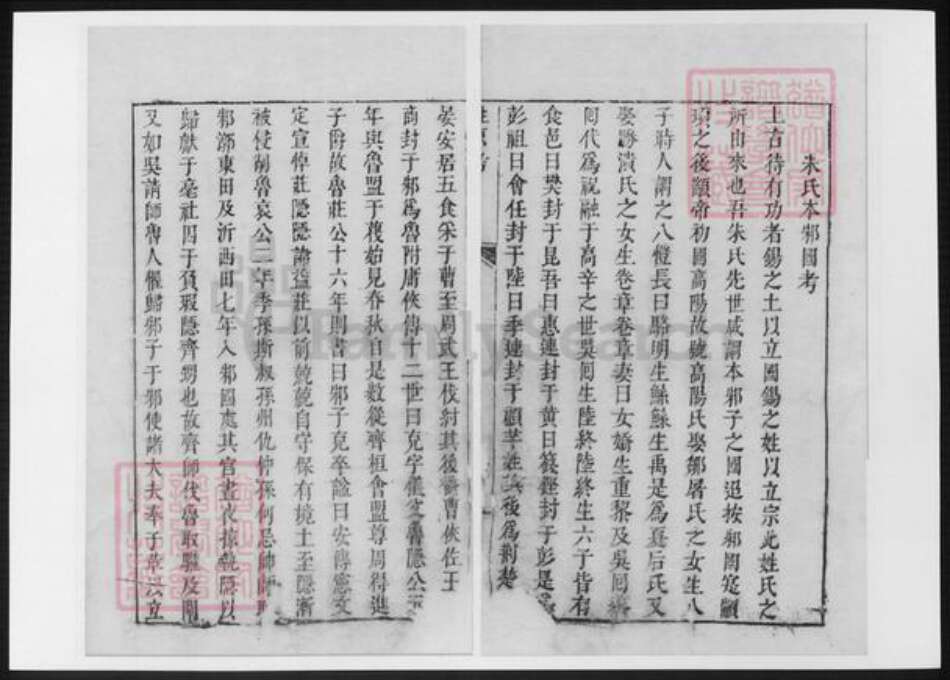 朱氏本邾國考
上古待有功者錫之土以立國錫之姓以立宗此姓氏之
所由來也吾朱氏先世咸謂本邾子之國迨按邾開寔顓
頊之後顓帝初國高陽故號高陽氏娶鄒屠氏之女生八
子時人謂之八愷長曰駱明生鯀鯀生禹是為夏后氏又
娶勝濆氏之女生卷章卷章妻曰女嬌生重黎及吳囘
囘代為祝融于高辛之世吳囘生陸終陸終生六子皆有
食邑曰樊封于昆吾曰惠連封于黄曰籛鏗封于彭是為
彭祖曰會任封于陸曰季連封于顧芈姓後為荆楚
姓原考
晏安居五食采于曹至周武王伐紂其後曹俠佐王
商封于邾為魯附庸俠傳十二世曰克字儀父魯隱公元
年與魯盟于蔑始見春秋自是數從齊桓會盟尊周得進
子爵故魯莊公十六年則書曰邾子克卒諡曰安傳憲文
定宣悼莊隱隱諭益莊以前兢兢自守保有境土至隱漸
被侵削魯哀公二年季孫斯叔孫州仇仲孫何忌帥師
邾漷東田及沂西田七年入邾國處其宫晝衣掠執隱以
歸獻于亳社囚于負瑕隱齊甥也故齊師伐魯取讙及闡
又如吳請師魯人懼歸邾子于邾使諸大夫奉子革以立
FamilySearch